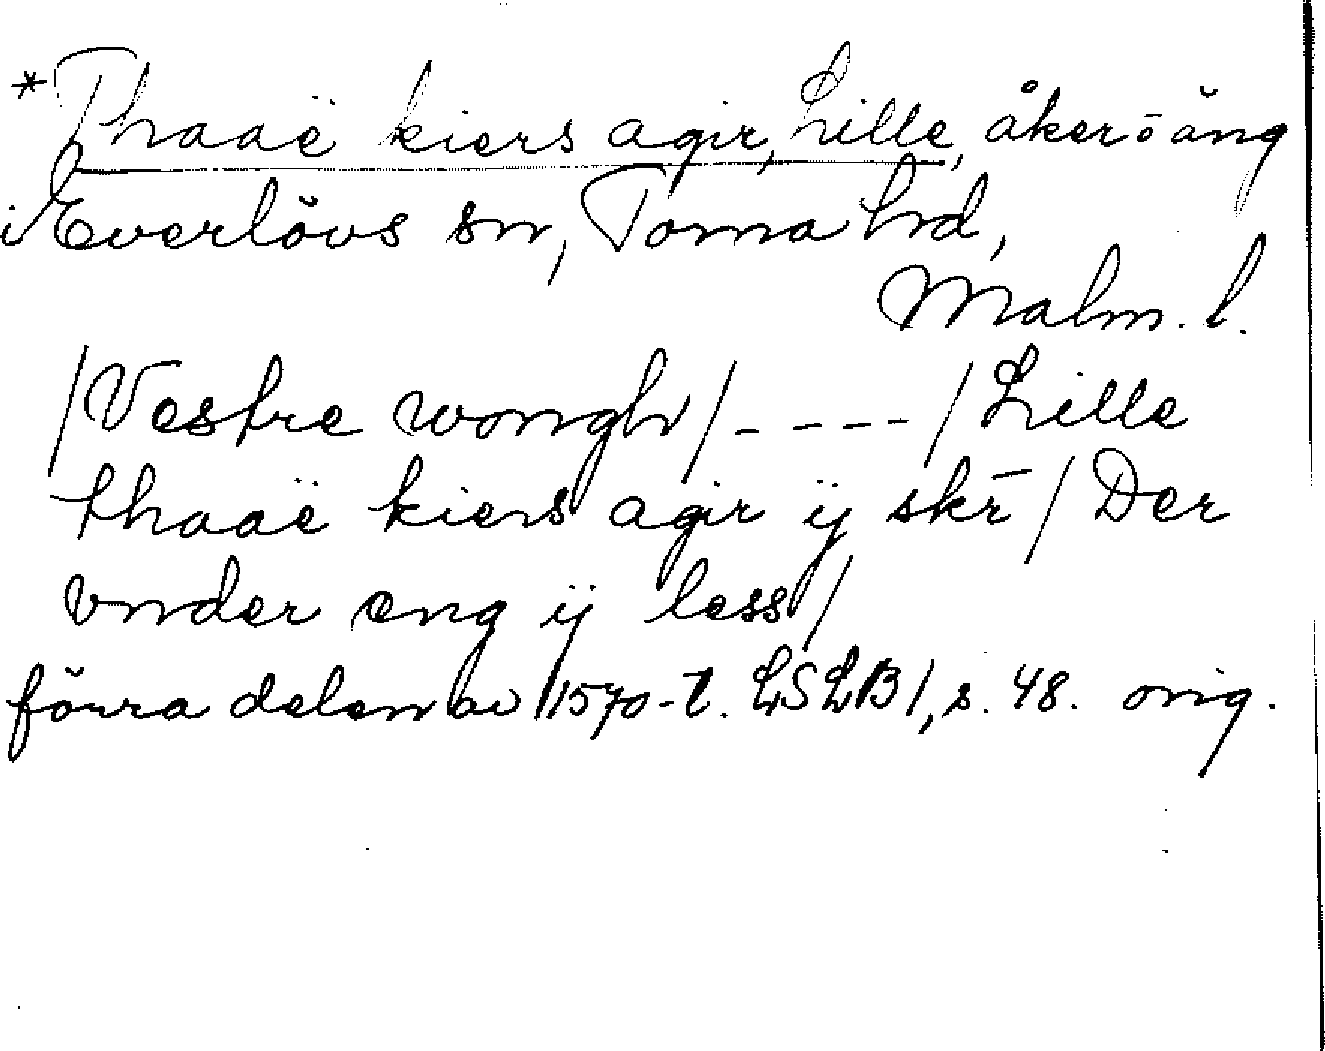 *Thaaë kiers agir, Lille, åker o äng
i Everlövs sn, Torna hd,
Malm. l.
/Vestre wongh/ - - - - /Lille
thaaë kiers agir ij skr̄ / Der
vnder eng ij less/
förra delen av 1570-t. LSLB I, s. 48. orig.